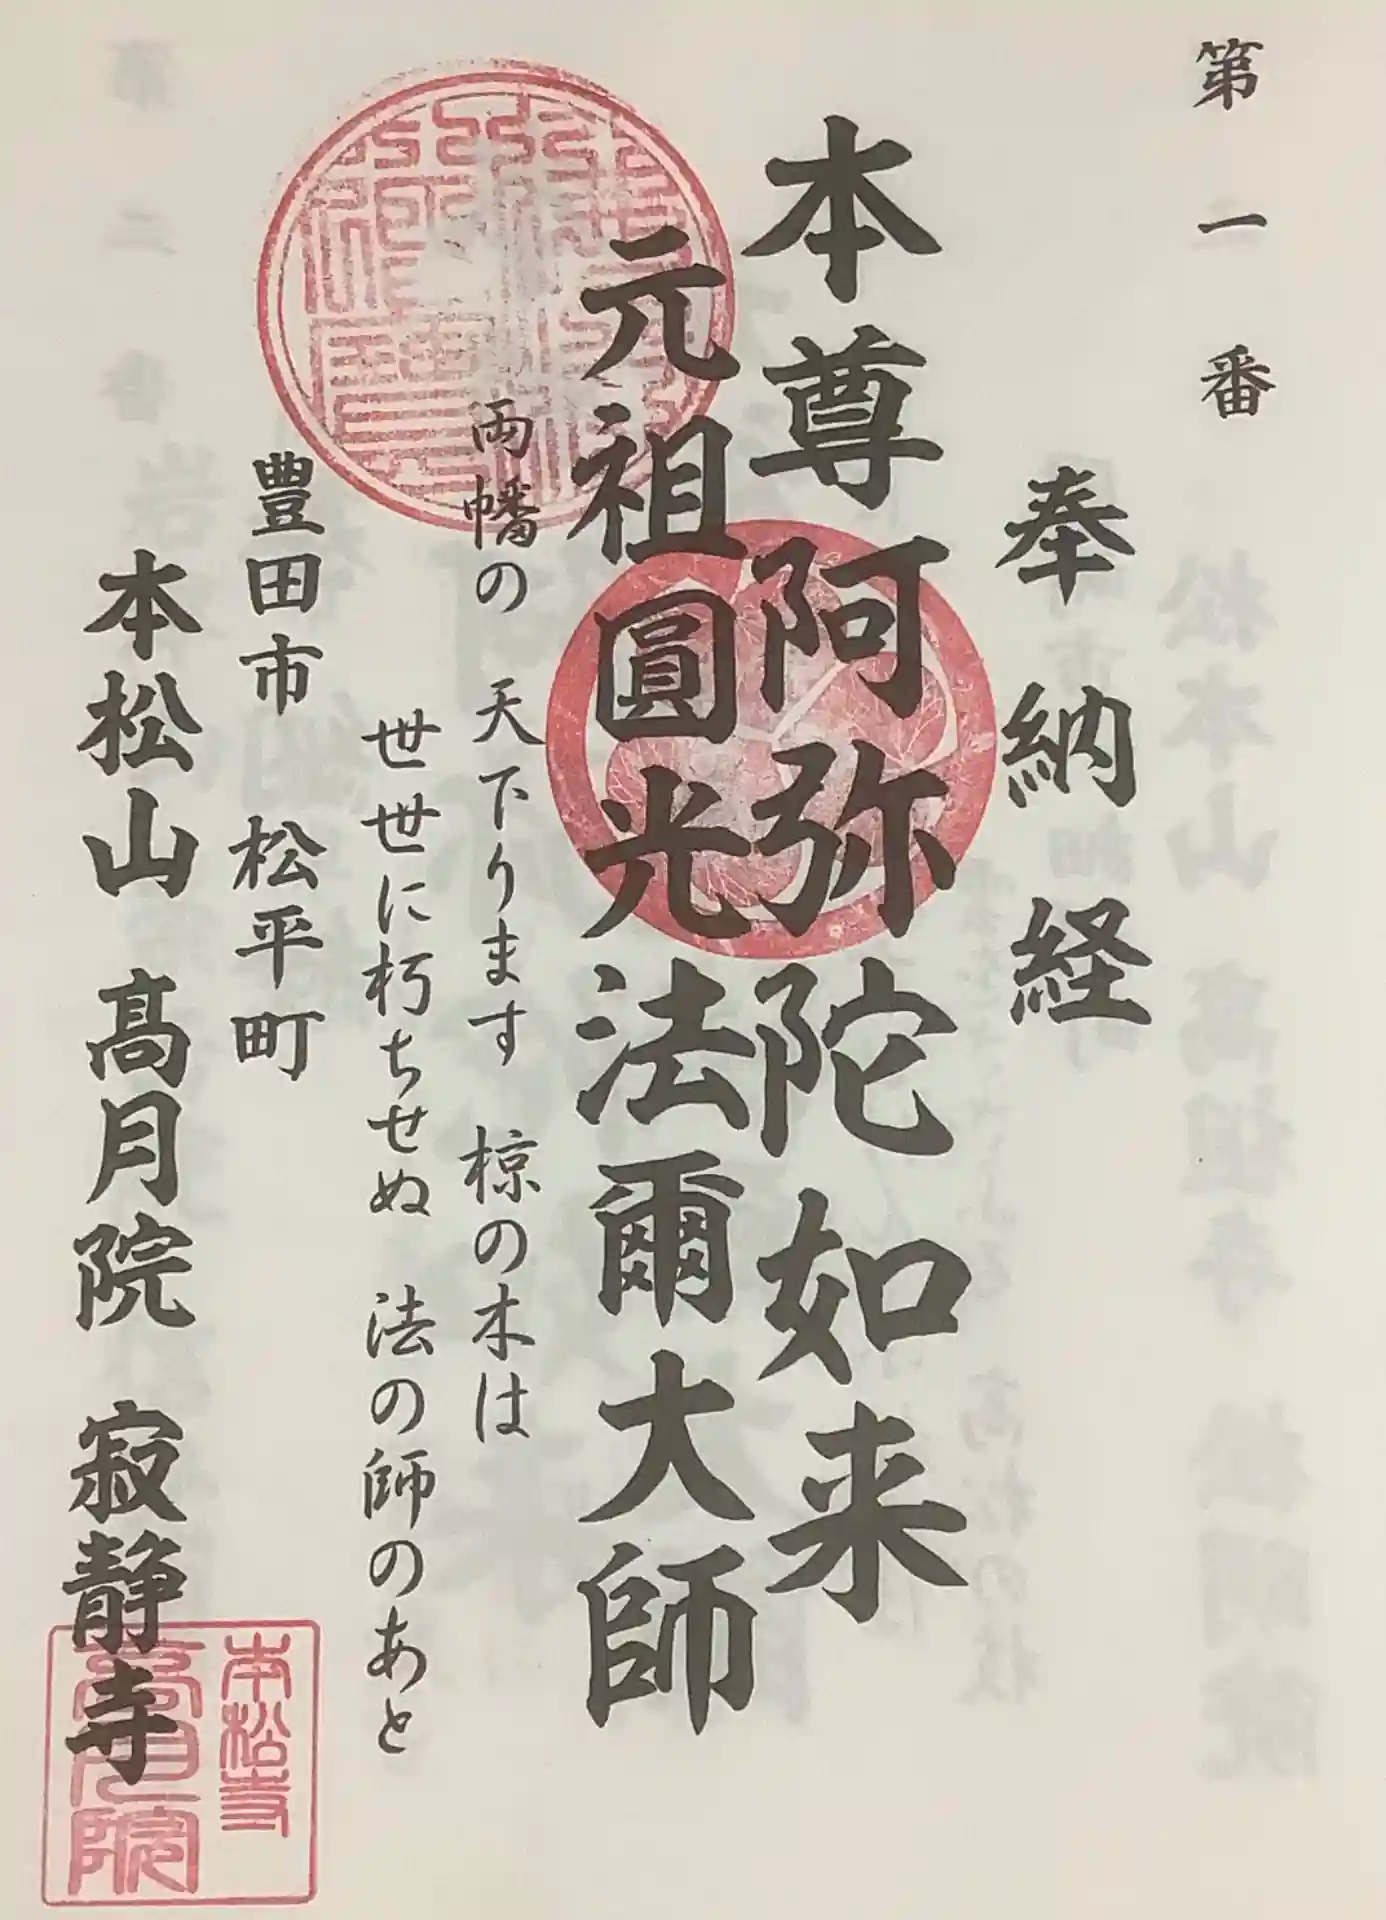 第一番
奉納経
本尊阿弥陀如来
元祖圓光法爾大師
両幡の 天下ります 椋の木は
世世に朽ちせぬ 法の師のあと
豊田市 松平町
本松山 高月院 寂静寺
本松寺
高月院